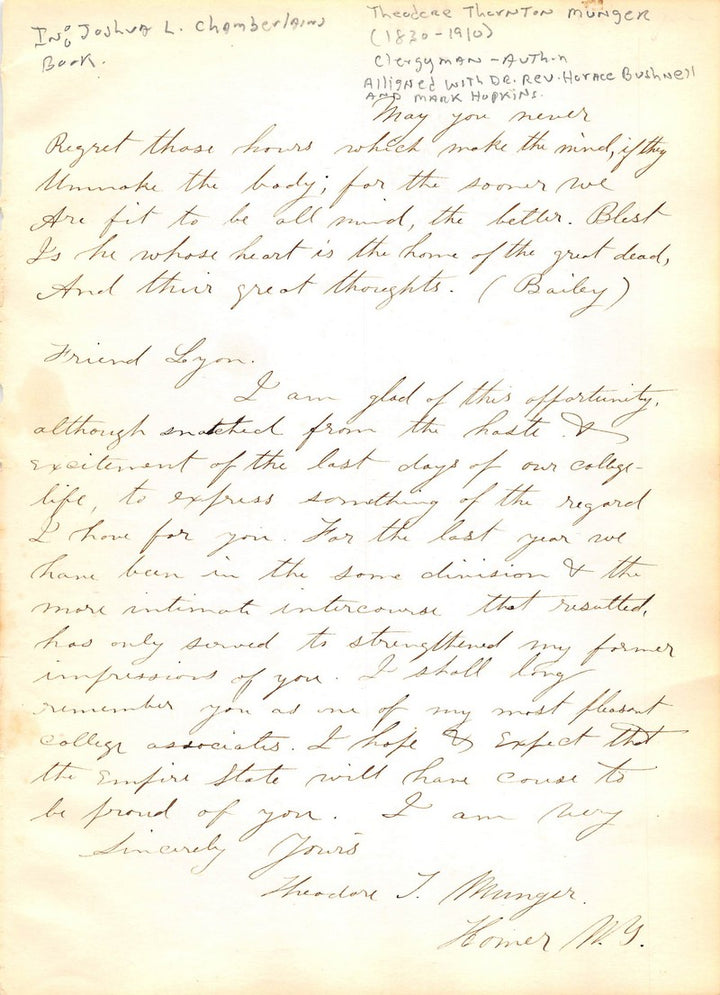 IN: Joshua L. Chamberlains
Book.
Theodore Thornton Munger
(1830-1910)
Clergyman - Author
Alligned with DR. Rev. Horace Bushnell
AND MARK HOPKINS.
May you never
Regret those hours which make the mind, if they
Unmake the body; for the sooner we
Are fit to be all mind, the better. Blest
Is he whose heart is the home of the great dead,
And their great thoughts. (Bailey)
Friend Lyon.
I am glad of this opportunity,
although snatched from the haste &
excitement of the last days of our college-
life, to express something of the regard
I have for you. For the last year we
have been in the same division & the
more intimate intercourse that resulted,
has only served to strengthened my former
impressions of you. I shall long
remember you as one of my most pleasant
college associates. I hope & Expect that
the Empire State will have cause to
be proud of you. I am very
Sincerely Yours
Theodore T. Munger.
Homer N.Y.